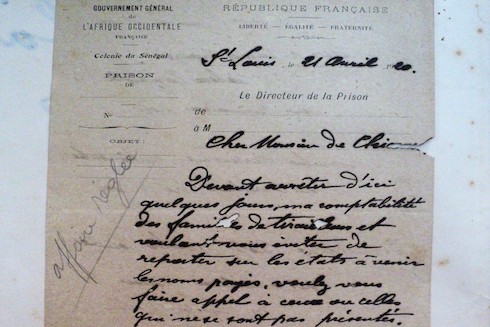 GOUVERNEMENT GÉNÉRAL
DE
L'AFRIQUE OCCIDENTALE
FRANÇAISE
Colonie du Sénégal
PRISON
DE
N°
OBJET:
affaire réglée
RÉPUBLIQUE FRANÇAISE
LIBERTÉ — ÉGALITÉ — FRATERNITÉ
St Louis, le 21 Avril 1920.
Le Directeur de la Prison
de
à M
Cher Monsieur de
Devant arrêter d'ici
quelques jours, ma comptabilité
des familles de tirailleurs et
voulant vous éviter de
reporter sur les états à venir
les noms payés, voulez vous
faire appel à ceux ou celles
qui ne se sont pas présentés.